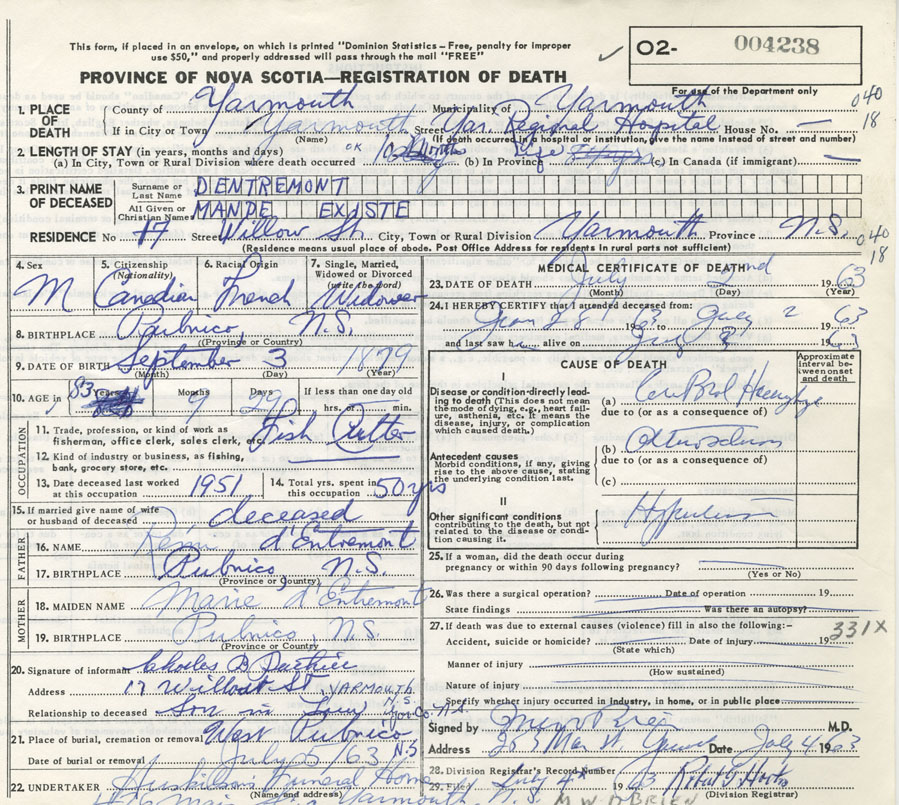 This form, if placed in an envelope, on which is printed "Dominion Statistics – Free, penalty for improper
use $50," and properly addressed will pass through the mail "FREE"
PROVINCE OF NOVA SCOTIA—REGISTRATION OF DEATH
02- 004238
For use of the Department only
1. PLACE OF DEATH
County of Yarmouth Municipality of Yarmouth
040
18
If in City or Town Yarmouth Street Yar. Regional Hospital House No. —
(Name) (If death occurred in a hospital or institution, give the name instead of street and number)
2. LENGTH OF STAY (in years, months and days)
(a) In City, Town or Rural Division where death occurred OK 10 (b) In Province Life (c) In Canada (if immigrant) —
3. PRINT NAME OF DECEASED
Surname or Last Name D'ENTREMONT
All Given or Christian Name MANDE EXISTE
RESIDENCE No 17 Street Willow St. City, Town or Rural Division Yarmouth Province N.S.
(Residence means usual place of abode. Post Office Address for residents in rural parts not sufficient)
040
18
4. Sex M
5. Citizenship (Nationality) Canadian
6. Racial Origin French
7. Single, Married, Widowed or Divorced (write the word) Widower
8. BIRTHPLACE Pubnico, N.S.
(Province or Country)
9. DATE OF BIRTH September 3 1879
(Month) (Day) (Year)
10. AGE in 83 Years Months 9 Days 29 If less than one day old hrs. or min.
OCCUPATION
11. Trade, profession, or kind of work as fisherman, office clerk, sales clerk, etc. Fish Cutter
12. Kind of industry or business, as fishing, bank, grocery store, etc.
13. Date deceased last worked at this occupation 1951
14. Total yrs. spent in this occupation 50 yrs
15. If married give name of wife or husband of deceased deceased
FATHER
16. NAME Remi d'Entremont
17. BIRTHPLACE Pubnico N.S.
(Province or Country)
MOTHER
18. MAIDEN NAME Marie d'Entremont
19. BIRTHPLACE Pubnico, N.S.
(Province or Country)
20. Signature of informant Charles D
Address 17 Willow St., YARMOUTH N.S.
Relationship to deceased Son in Law Yar. Co. N.S.
21. Place of burial, cremation or removal West Pubnico, N.S
Date of burial or removal July 5/63
22. UNDERTAKER Funeral Home
(Name and address)
Yarmouth N.S.
MEDICAL CERTIFICATE OF DEATH
23. DATE OF DEATH July 2nd 1963
(Month) (Day) (Year)
24. I HEREBY CERTIFY that I attended deceased from:
Jan 28 1963 to July 2 1963
and last saw h alive on July 2 1963
CAUSE OF DEATH
Approximate interval between onset and death
I
Disease or condition directly leading to death (This does not mean the mode of dying, e.g., heart failure, asthenia, etc. It means the disease, injury, or complication which caused death.)
(a) Cerebral
due to (or as a consequence of)
Antecedent causes
Morbid conditions, if any, giving rise to the above cause, stating the underlying condition last.
(b)
due to (or as a consequence of)
(c)
II
Other significant conditions contributing to the death, but not related to the disease or condition causing it.
25. If a woman, did the death occur during pregnancy or within 90 days following pregnancy?
(Yes or No)
26. Was there a surgical operation? Date of operation 19
State findings Was there an autopsy?
27. If death was due to external causes (violence) fill in also the following:–
Accident, suicide or homicide? Date of injury 19 331X
(State which)
Manner of injury
(How sustained)
Nature of injury
Specify whether injury occurred in industry, in home, or in public place
Signed by M.D.
Address Date July 4 1963
28. Division Registrar's Record Number
29. Filed July 4 1963
(Division Registrar)
M.W. O'BRIEN